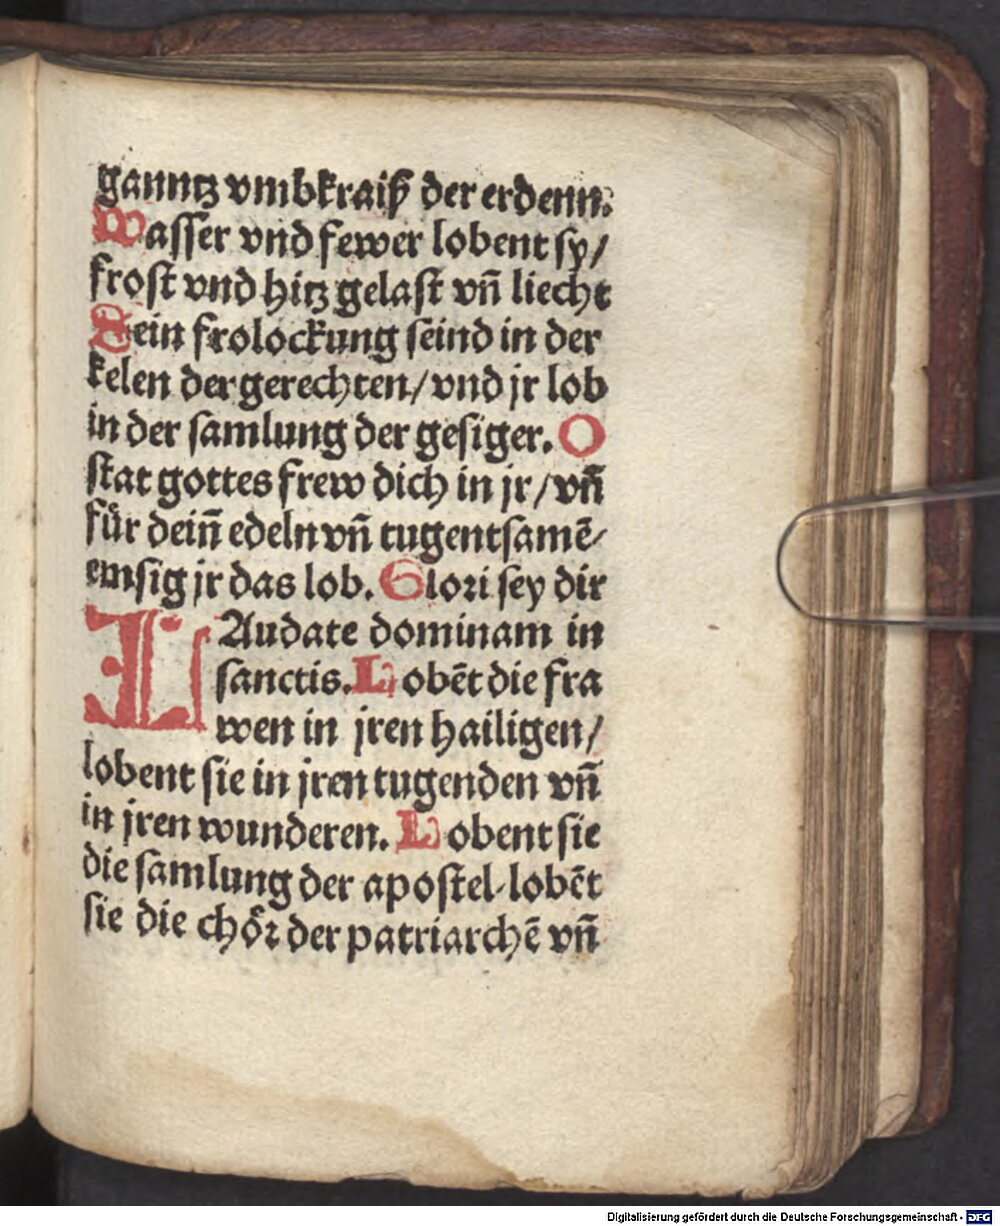 ganntz vmbkraiß der erdenn.
Wasser vnd fewer lobent sy/
frost vnd hitz gelast vn̄ liecht
Sein frolockung seind in der
kelen der gerechten/vnd jr lob
in der samlung der gesiger. O
stat gottes frew dich in jr/vn̄
für dein̄ edeln vn̄ tugentsamē
emsig jr das lob. Glori sey dir
LAudate dominam in
sanctis. Lobēt die fra
wen in jren hailigen/
lobent sie in jren tugenden vn̄
in jren wunderen. Lobent sie
die samlung der apostel/lobēt
sie die chör der patriarchē vn̄
Digitalisierung gefördert durch die Deutsche Forschungsgemeinschaft - DFG